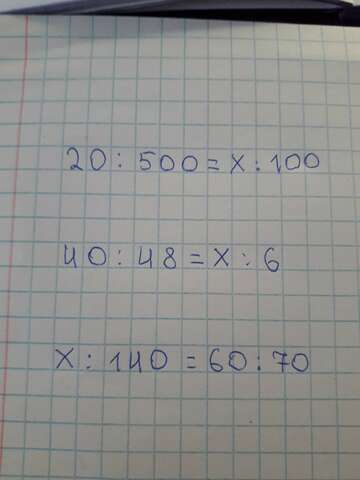 20 : 500 = x : 100
40 : 48 = x : 6
x : 140 = 60 : 70